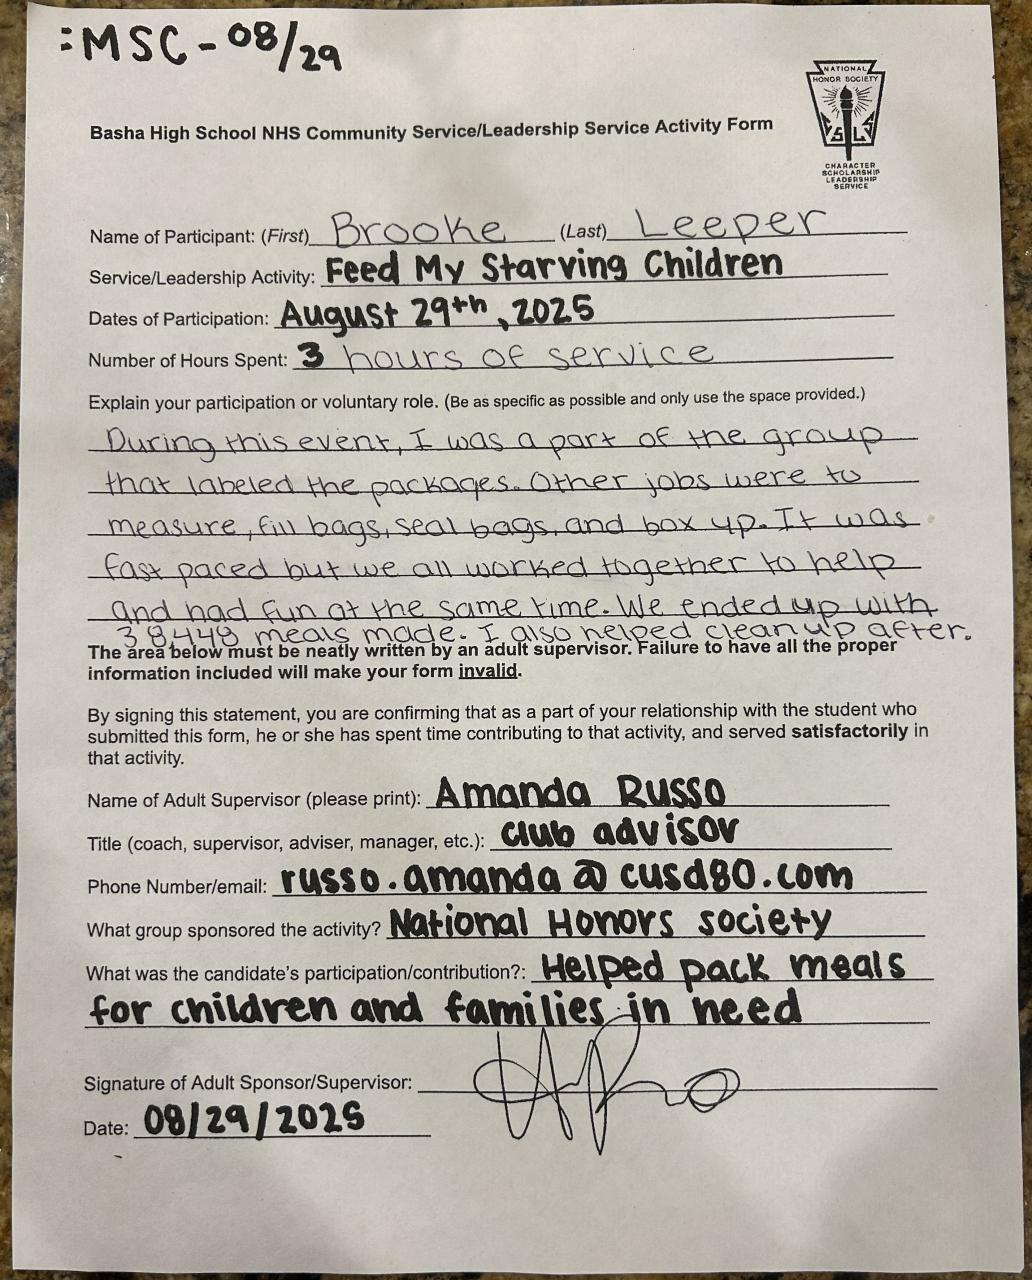 :MSC - 08/29
NATIONAL
HONOR SOCIETY
CHARACTER
SCHOLARSHIP
LEADERSHIP
SERVICE
Basha High School NHS Community Service/Leadership Service Activity Form
Name of Participant: (First) Brooke (Last) Leeper
Service/Leadership Activity: Feed My Starving Children
Dates of Participation: August 29th, 2025
Number of Hours Spent: 3 hours of service
Explain your participation or voluntary role. (Be as specific as possible and only use the space provided.)
During this event, I was a part of the group
that labeled the packages. Other jobs were to
measure, fill bags, seal bags, and box up. It was
fast paced but we all worked together to help
and had fun at the same time. We ended up with
38448 meals made. I also helped clean up after.
The area below must be neatly written by an adult supervisor. Failure to have all the proper
information included will make your form invalid.
By signing this statement, you are confirming that as a part of your relationship with the student who
submitted this form, he or she has spent time contributing to that activity, and served satisfactorily in
that activity.
Name of Adult Supervisor (please print): Amanda Russo
Title (coach, supervisor, adviser, manager, etc.): club advisor
Phone Number/email: russo.amanda@cusd80.com
What group sponsored the activity? National Honors society
What was the candidate's participation/contribution?: Helped pack meals
for children and families in need
Signature of Adult Sponsor/Supervisor:
Date: 08/29/2025